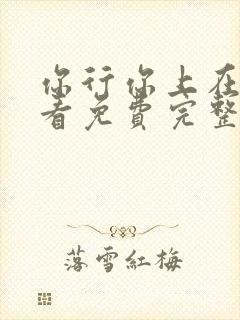 你行你上在
看免費完整
落雪紅梅